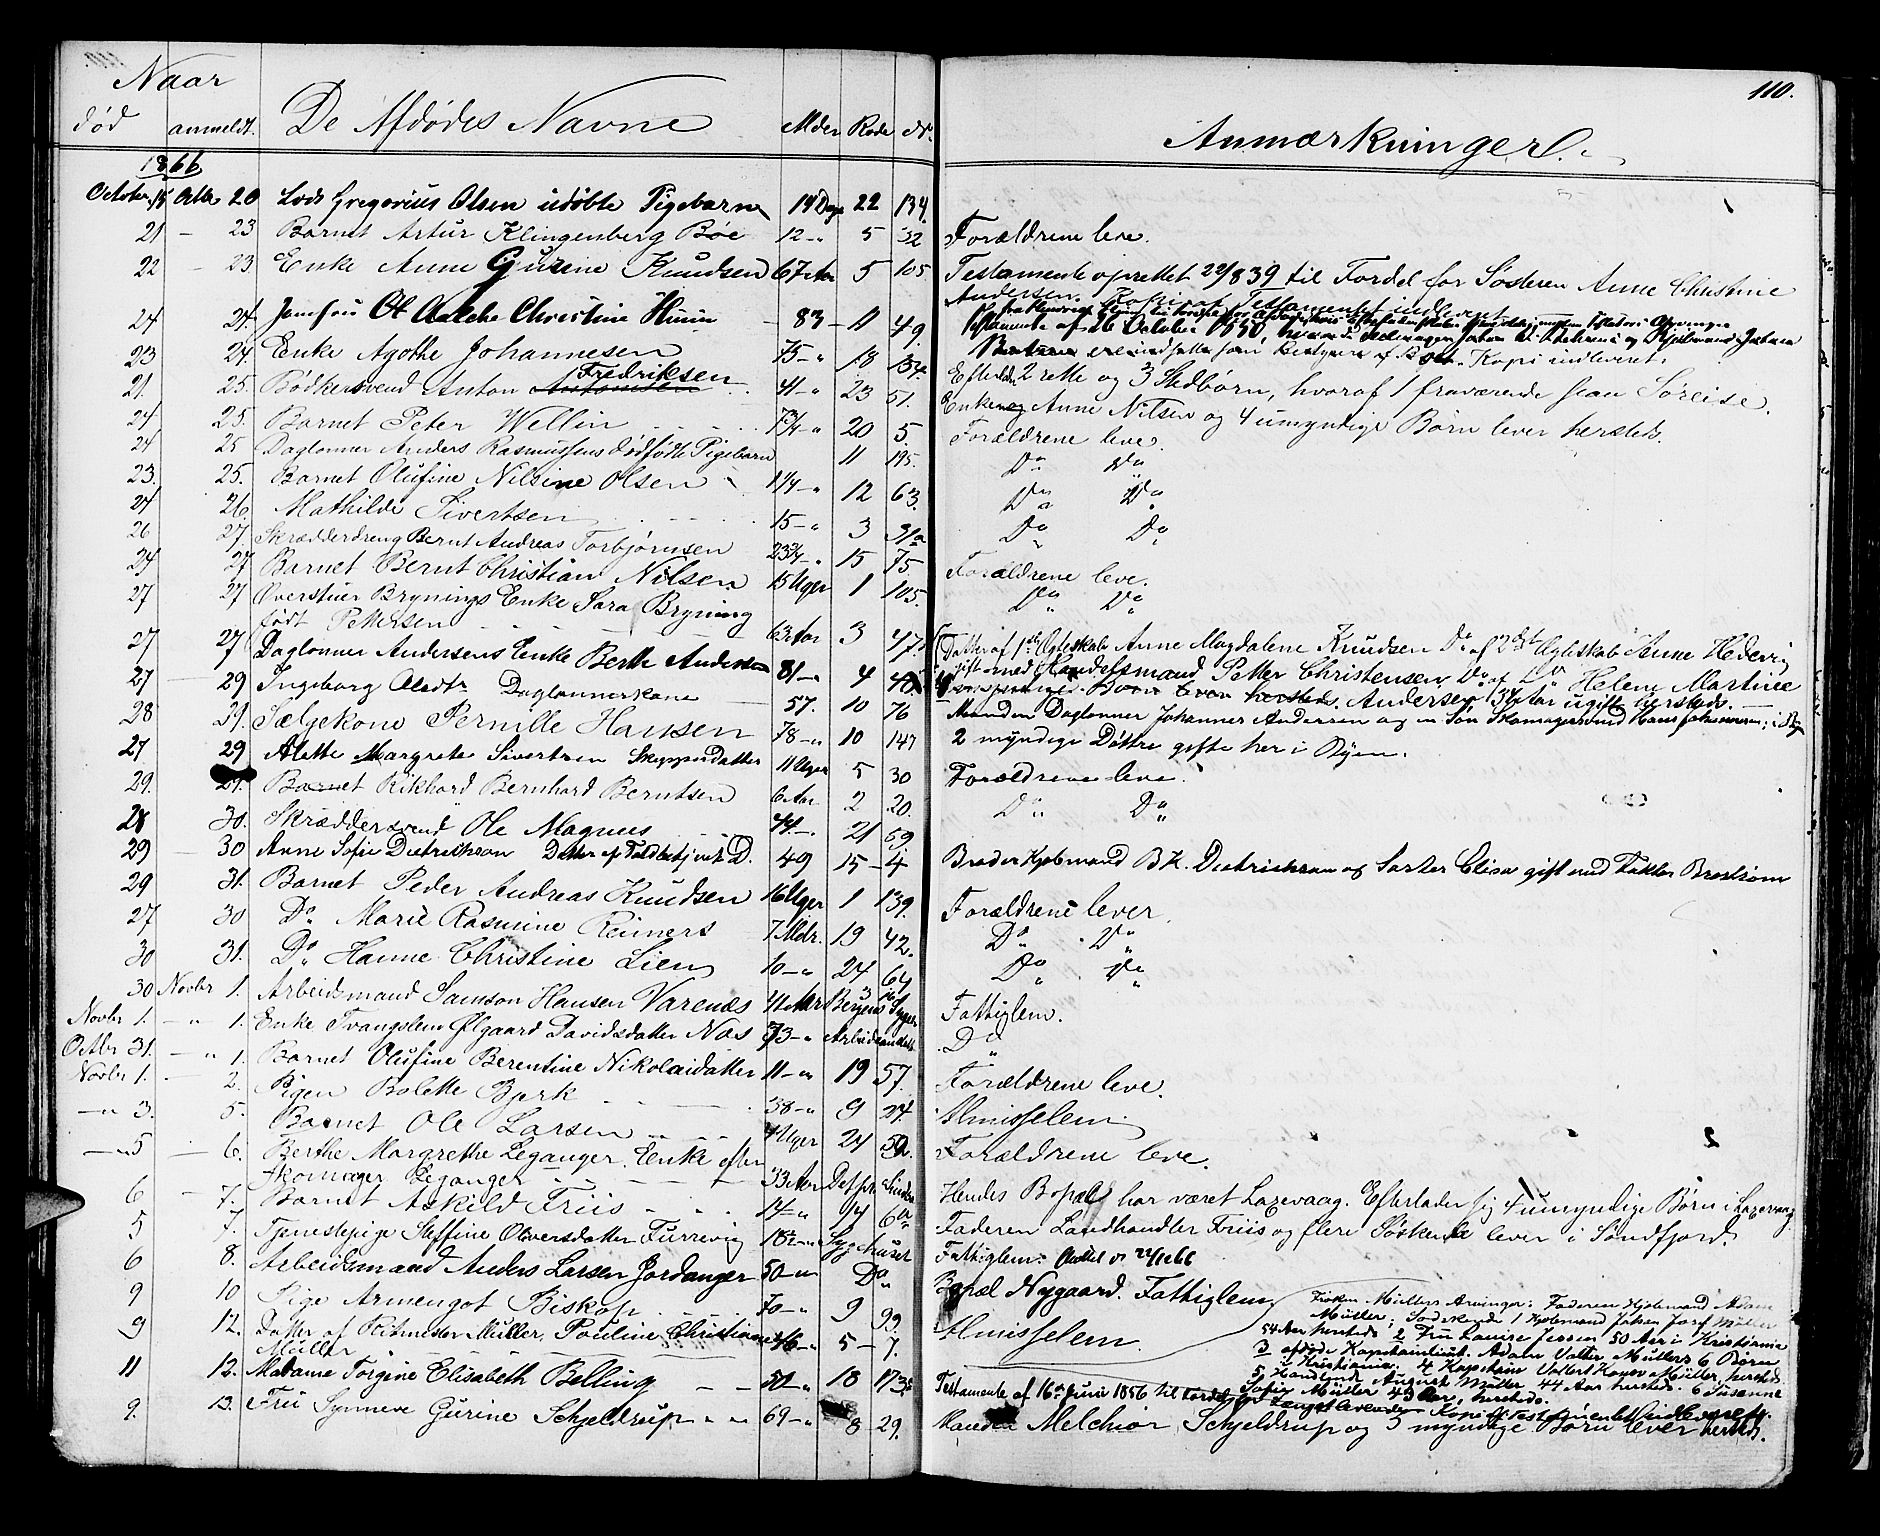 110.
Naar
død anmeldt. De Afdødes Navne Alder Rode No. Anmærkninger.
1866
October 15 Octbr 20 Lods Gregorius Olsen udøbte Pigebarn 14 Dage 22 134.
21 — 23 Barnet Artur Klingenberg Bøe 12 -„ 5 32 Forældrene leve.
22 — 23 Enke Anne Gurine Knudsen 67 Aar 5 105 Testamente oprettet 22/8 39 til Fordel for Søsteren Anne Christine
Andersen. Kopi af Testamentet indleveret
24 24. Jomfru Christine Huun — 83 — 11 49. Testamente af 26 October 1850,
23 24. Enke Agathe Johannesen 75 -„ 18 154 Kopi indleveret.
21. 25. Bødkersvend Anton Antonsen Fredriksen 41 -„ 23 51. Efterlader 2 rette og 3 Stedbørn, hvoraf 1 fraværende
24 25. Barnet Peter Wellin 7 3/4 -„ 20 5. Enken Anne Nilsen og 4 umyndige Børn lever hersteds.
24 25 Daglønner Anders Rasmussens dødfødte Pigebarn 11 195. Forældrene leve.
23. 25. Barnet Olufine Nilsine Olsen 1 1/4 -„ 12 63. Do Do
24 26. Mathilde Sivertsen 15 -„ 3 31a Do Do
26 27. Skrædderdreng Bernt Andreas Torbjørnsen 23 3/4 -„ 15 75 Do Do
24 27 Barnet Bernt Christian Nilsen 15 Uger 1 105. Forældrene leve.
27 27 Overstuer Brynings Enke Sara Bryning Do Do
født Pettersen 63 Aar 3 47
27 27 Daglønner Andersens Enke Berthe Andersen 81 -„ 4 40 Datter af 1ste Ægteskab Anne Magdalene Knudsen Do af 2det Ægteskab Anne Hedevig
gift med Handelsmand Petter Christensen Do af Do Helene Martine
Andersen, 34 Aar ugift hersteds.
27 — 29 Ingeborg Olsdtr Daglønnerkone 57. 10 76 Manden Daglønner Johannes Andersen og en Søn Skomagersvend Hans Johannesen, i Byen
28 29. Sælgekone Pernille Hansen 78 -„ 10 147 2 myndige Døttre gifte her i Byen.
27 29 Alette Margrete Sivertsen Skippersdatter 11 Uger 5 30 Forældrene leve.
29. 29. Barnet Rikhard Bernhard Berntsen 6 Aar 2 20. Do Do
28 30. Skræddersvend Ole Magnus 44 -„ 21 59.
29 — 30 Anne Sofie Dietrichson Datter af Toldbetjent D. 49 15 - 4 Broder Kjøbmand B.K. Dietrichson og Søster Elisa gift med
29 31. Barnet Peder Andreas Knudsen 16 Uger 1 139. Forældrene lever.
27 30 Do Marie Rasmine Reimers 7 Mdr. 19 42. Do Do
30 31. Do Hanne Christine Lien 10 -„ 24 64 Do Do
30 Novbr 1. Arbeidsmand Samson Hansen Varenæs 41 Aar Bergens Sygeh. Fattiglem.
Novbr 1. — „ 1. Enke Tvangslem Ølgaard Davidsdatter Næs 73 -„ Arbeidsanstalt Do
Octbr 31. — „ 1. Barnet Olufine Berentine Nikolaidatter 11 -„ 19 57. Forældrene leve.
Novbr 1. — 2. Pigen Bolette Bjerk 38 -„ 9 24. Almisselem.
-„ 3. 5. Barnet Ole Larsen 4 Uger 24 52. Forældrene leve.
-„ 5 — 6. Berthe Margrethe Leganger, Enke efter
Skomager Leganger 33 Aar Hendes Bopæl har været Laxevaag. Efterlader sig 4 umyndige Børn i Laxevaag
6 — 7. Barnet Askild Friis 14 -„ 14 6a Faderen Landhandler Friis og flere Søskende lever i Søndfjord.
5 7. Tjenestepige Steffine Olversdatter Furrevig 18 1/2 -„ Sygehuset Fattiglem.
6 8. Arbeidsmand Anders Larsen Jordanger 50 -„ Do Bopæl Nygaard. Fattiglem
9 10 Pige Armengot Biskop 70 -„ 9 99. Almisselem.
9 12. Datter af Ritmester Müller, Pauline Christiane
Müller 46 -„ 5 - 7. Frøken Müllers Arvinger: Faderen Kjøbmand Adam
Müller; Søskende 1 Kjøbmand Johan Josef Müller
54 Aar hersteds 2 Fru Louise Jessen 50 Aar i Kristiania
3 afdøde Kapteinlieut. Adam Valter Müllers 6 Børn
i Kristiania. 4 Kaptein Müller, hersteds
5 Handlende August Müller 44 Aar hersteds. 6 Susanne
Sofie Müller 43 Aar, hersteds.
11 12. Madame Torgine Elisabeth Belling 50 -„ 18 173 Testamente af 16de Juni 1856 til Fordel for Længstlevende. Kopi af Testamentet indleveret.
9. 13. Fru Synneve Gurine Schjeldrup 69 -„ 8 29. Manden Melchior Schjeldrup og 3 myndige Børn lever hersteds.